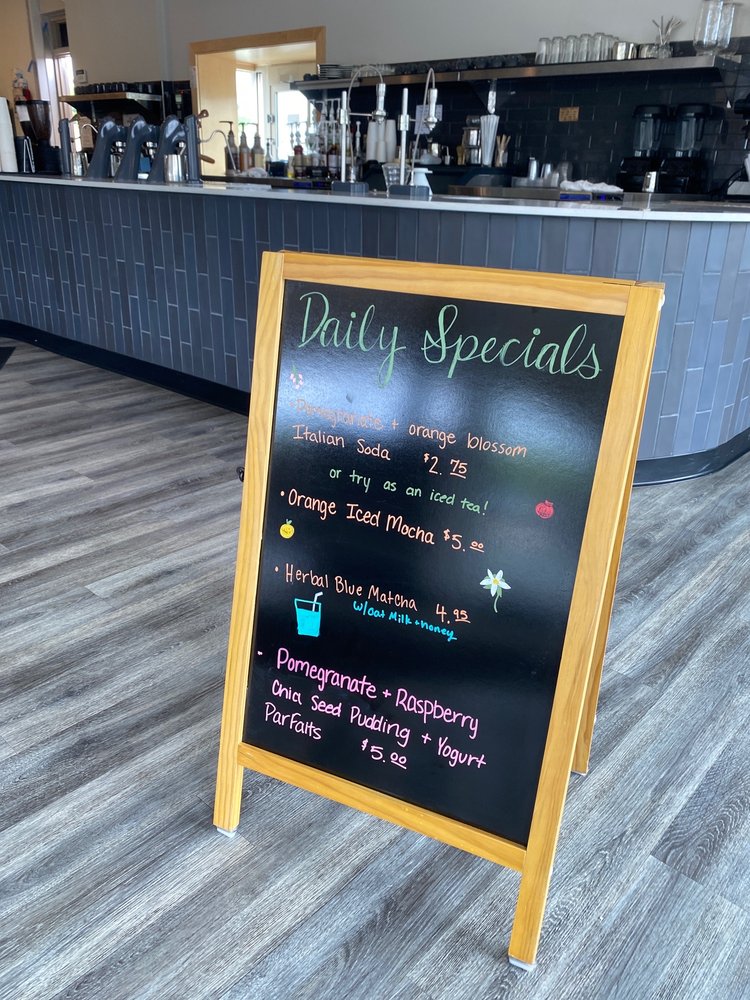 Daily Specials
• Pomegranate + orange blossom
Italian Soda $2.75
or try as an iced tea!
• Orange Iced Mocha $5.00
• Herbal Blue Matcha 4.95
w/Oat Milk + honey
- Pomegranate + Raspberry
Chia Seed Pudding + Yogurt
Parfaits $5.00